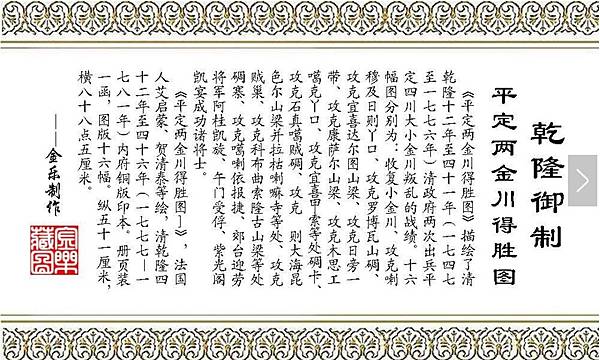 乾隆御制
平定两金川得胜图
《平定两金川得胜图》描绘了清
乾隆十二年至四十一年(一七四七
至一七七六年)清政府两次出兵平
定四川大小金川叛乱的战绩。十六
幅图分别为:收复小金川、攻克喇
穆及日则丫口、攻克罗博瓦山碉、
攻克宜喜达尔图山梁、攻克日旁一
带、攻克康萨尔山梁、攻克木思工
噶克丫口、攻克宜喜甲索等处碉卡、
攻克石真噶贼碉、攻克 则大海昆
色尔山梁并拉枯喇嘛寺等处、攻克
贼巢、攻克科布曲索隆古山梁等处
碉寨、攻克噶喇依报捷、郊台迎劳
将军阿桂凯旋、午门受俘、紫光阁
凯宴成功诸将士。
《平定两金川得胜图》,法国
人艾启蒙、贺清泰等绘,清乾隆四
十二年至四十六年(一七七七—一
七八一年)内府铜版印本。册页装
一函,图版十六幅。纵五十一厘米,
横八十八点五厘米。
——金乐制作